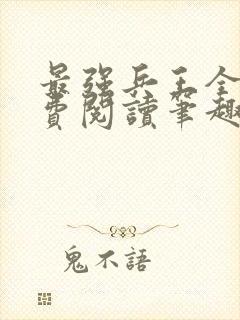 最強兵王全
費閱讀筆趣
鬼不語